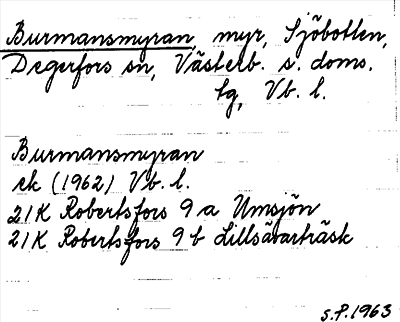 Burmansmyran, myr, Sjöbotten,
Degerfors sn, Västerb. s. doms.
tg, Vb. l.
Burmansmyran
ek (1962) Vb. l.
21K Robertsfors 9 a Umsjön
21K Robertsfors 9 b Lillsävarträsk
S.P. 1963